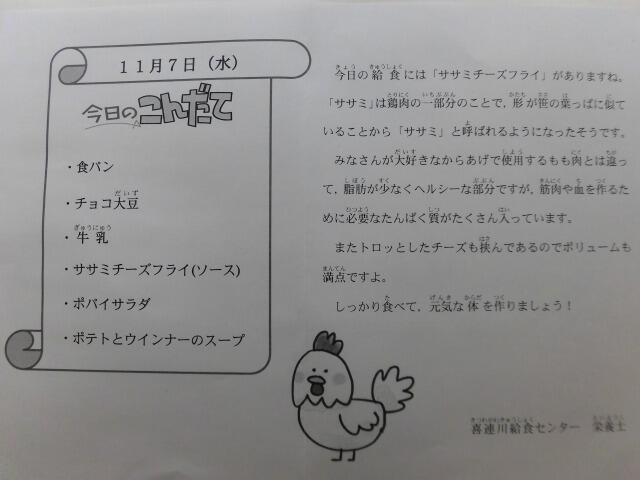 11月7日（水）
今日のこんだて
・食パン
・チョコ大豆
・牛乳
・ササミチーズフライ(ソース)
・ポパイサラダ
・ポテトとウインナーのスープ
今日の給食には「ササミチーズフライ」がありますね。
「ササミ」は鶏肉の一部分のことで，形が笹の葉っぱに似て
いることから「ササミ」と呼ばれるようになったそうです。
みなさんが大好きなからあげで使用するもも肉とは違っ
て，脂肪が少なくヘルシーな部分ですが，筋肉や血を作るた
めに必要なたんぱく質がたくさん入っています。
またトロッとしたチーズも挟んであるのでボリュームも
満点ですよ。
しっかり食べて，元気な体を作りましょう！
喜連川給食センター　栄養士